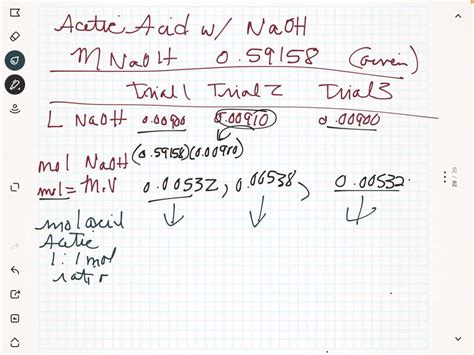 Acetic Acid w/ NaOH
M NaOH 0.59158 (Given)
Trial 1 Trial 2 Trial 3
L NaOH 0.00900 0.00910 0.00900
mol NaOH (0.59158)(0.00910)
mol = M.V 0.00532, 0.00538, 0.00532
mol acid
Acetic
1:1 mol
ratio
29 / 29